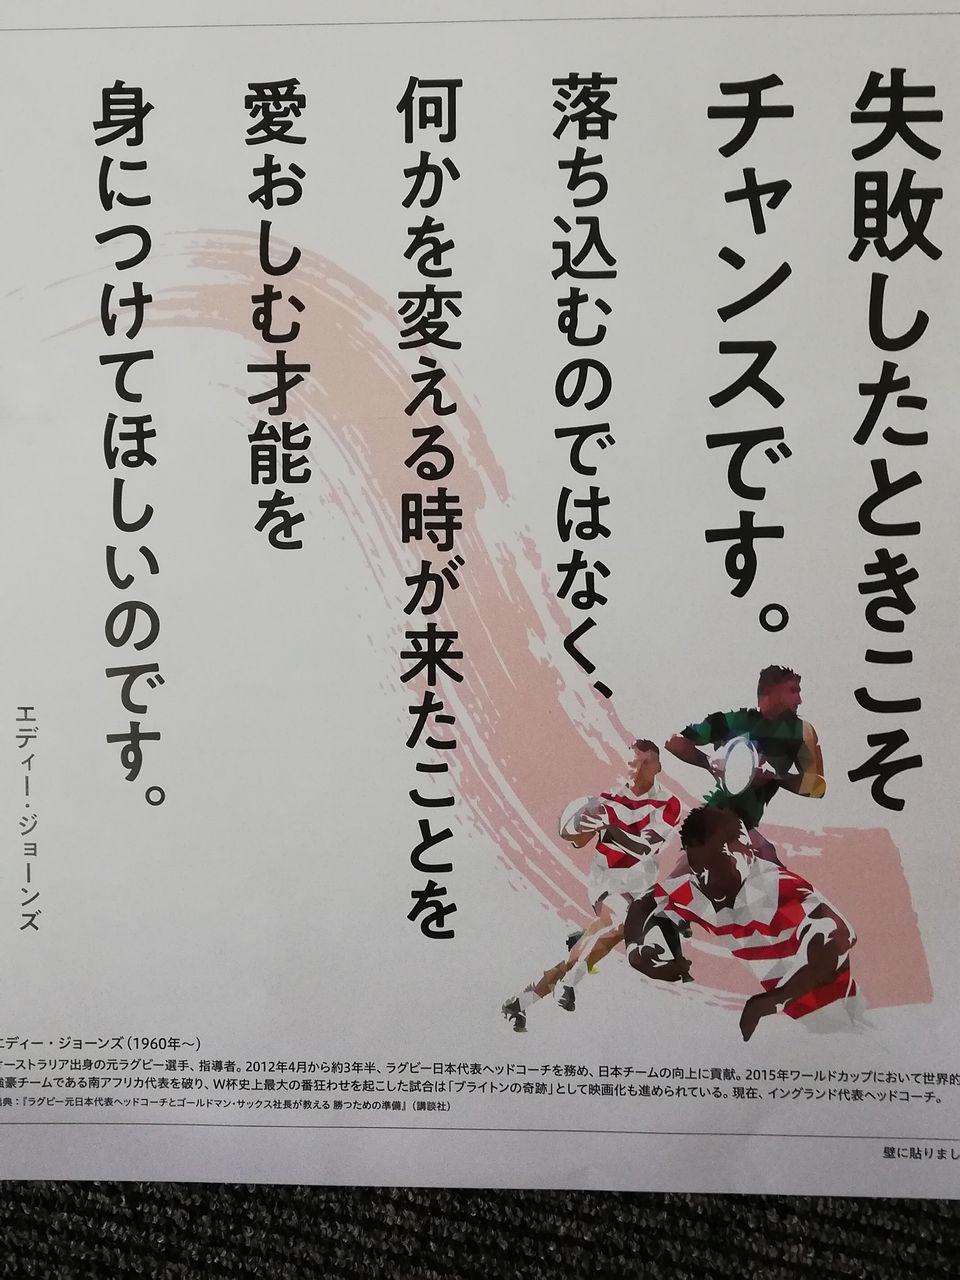 失敗したときこそ
チャンスです。
落ち込むのではなく、
何かを変える時が来たことを
愛おしむ才能を
身につけてほしいのです。
エディー・ジョーンズ
エディー・ジョーンズ(1960年〜)
ーストラリア出身の元ラグビー選手、指導者。2012年4月から約3年半、ラグビー日本代表ヘッドコーチを務め、日本チームの向上に貢献。2015年ワールドカップにおいて世界的
強豪チームである南アフリカ代表を破り、W杯史上最大の番狂わせを起こした試合は「ブライトンの奇跡」として映画化も進められている。現在、イングランド代表ヘッドコーチ。
出典:『ラグビー元日本代表ヘッドコーチとゴールドマン・サックス社長が教える 勝つための準備』(講談社)
壁に貼りまし